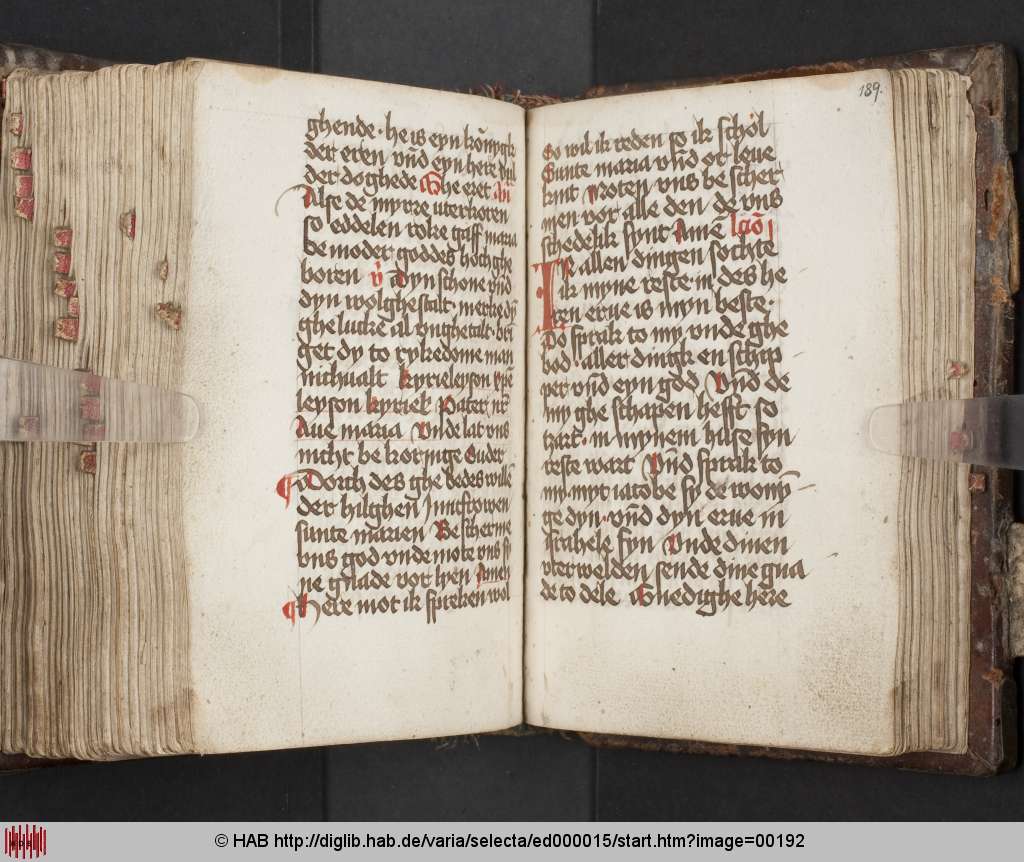 ghende · he is eyn kőnygk
der eren vnd eyn here dul
der doghede Ghe eret
Alse de myrre uterkoren
so eddelen roke gaff maria
be moder goddes hoch ghe
boren v̇ dyn schone vnd
dyn wolghestalt · merke dy
ghelucke al vnghetalt ·
get dy to rykedome man
nichualt kyrieleyson xp̄e
leyson kyriel Pater nr̄
Aue maria Vnde lat vns
nicht be koringe Suder
Dorch des ghe bedes wille
der hilghen Junckfrowen
sunte marien Bescherme
vns god vnde mote vns sy
ne gnade vor lyen Amen
Here mot ik spreken wol
189.
So wil ik reden so ik schol
Sunte maria vnd or leue
kint vroten vns be scher
men vor alle den de vns
schedelik synt Amē lcō j
In allen dingen sochte
ik myne reste in des he
ren erue is myn beste ·
Do sprak to my vnde ghe
bod · aller dingk en schip
per vnd eyn god Vnd de
my ghe schapen hefft so
trart · in mynem huse syn
reste wart Vnd sprak to
my myt iacobe sy de wony
ge dyn · vnd dyn erue in
israhele syn Vnde dinen
vterwelden sende dine gna
de to dele Gnedighe here
© HAB http://diglib.hab.de/varia/selecta/ed000015/start.htm?image=00192